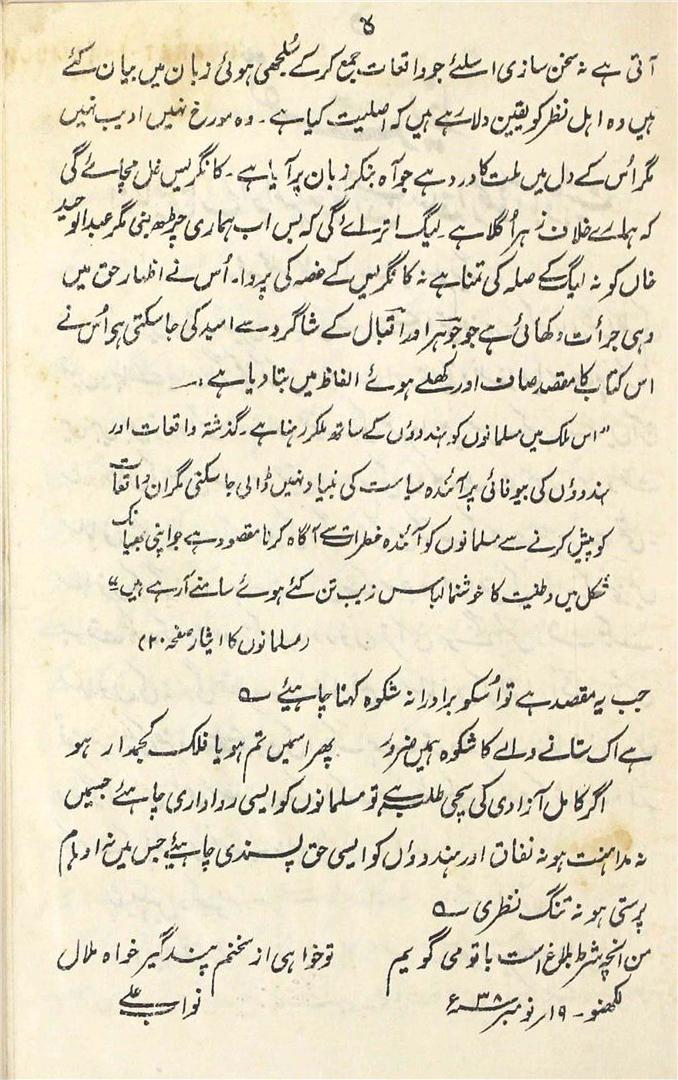 لا
آتی ہے نہ سخن سازی اسلئے جو واقعات جمع کرکے سُلجھی ہوئی زبان میں بیان کئے
ہیں وہ اہل نظر کو یقین دلا رہے ہیں کہ اصلیت کیا ہے۔ وہ مورخ نہیں ادیب نہیں
مگر اُس کے دل میں ملت کا درد ہے جو آہ بنکر زبان پر آیا ہے۔ کانگریس غل مچائے گی
کہ ہمارے خلاف زہر اُگلا ہے۔ لیگ اترائے گی کہ بس اب ہماری چڑھ بنی مگر عبدالوحید
خاں کو نہ لیگ کے صلہ کی تمنا ہے نہ کانگریس کے غصہ کی پروا۔ اُس نے اظہار حق میں
وہی جرأت دکھائی ہے جو جوہر اور اقبال کے شاگرد سے امید کی جاسکتی ہے اُس نے
اس کتاب کا مقصد صاف اور کھلے ہوئے الفاظ میں بتا دیا ہے:۔
"اس ملک میں مسلمانوں کو ہندوؤں کے ساتھ ملکر رہنا ہے۔ گذشتہ واقعات اور
ہندوؤں کی بیوفائی پر آئندہ سیاست کی بنیاد نہیں ڈالی جاسکتی مگر ان واقعات
کو پیش کرنے سے مسلمانوں کو آئندہ خطرات سے آگاہ کرنا مقصود ہے جو اپنی بھیانک
شکل میں وطنیت کا خوشنما لباس زیب تن کئے ہوئے سامنے آرہے ہیں"
(مسلمانوں کا ایثار صفحہ ۲۰)
جب یہ مقصد ہے تو اُسکو برادرانہ شکوہ کہنا چاہیئے ؎
ہے اک ستانے والے کا شکوہ ہمیں ضرور پھر اسمیں تم ہو یا فلک کجمدار ہو
اگر کامل آزادی کی سچی طلب ہے تو مسلمانوں کو ایسی رواداری چاہیئے جسمیں
نہ مداہنت ہو نہ نفاق اور ہندوؤں کو ایسی حق پسندی چاہیئے جس میں نہ اوہام
پرستی ہو نہ تنگ نظری ؎
من انچہ شرط بلاغ است با تو می گویم تو خواہی از سخنم پند گیر خواہ ملال
لکھنؤ۔ ۱۹ر نومبر ۳۸ء
نواب علی